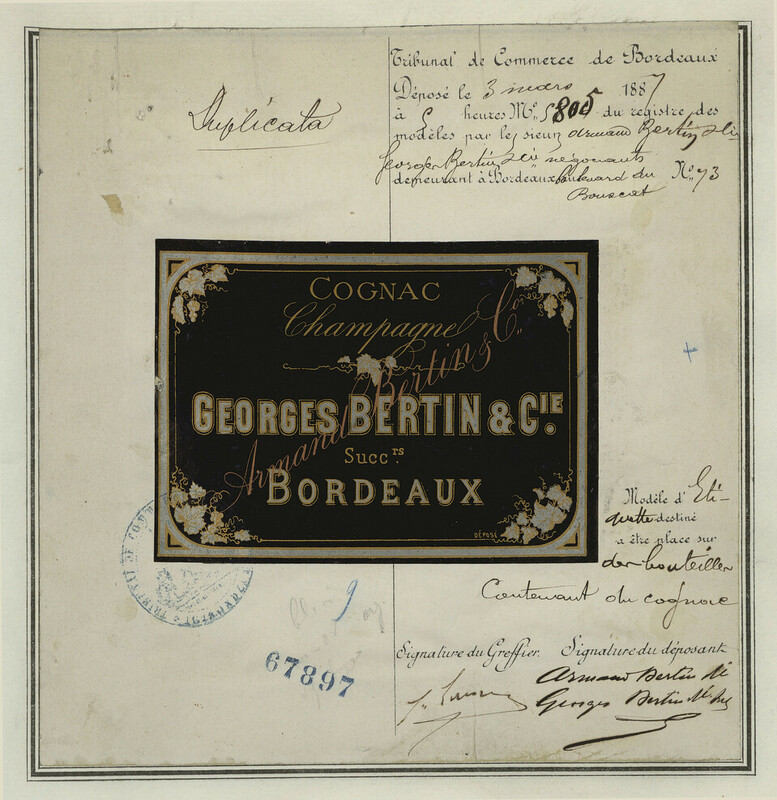 Duplicata
Tribunal de Commerce de Bordeaux
Déposé le 3 mars 1887
à 5 heures No. 5805 du registre des
modèles par les sieurs Armand Bertin & Cie
Georges Bertin & Cie négociants
demeurant à Bordeaux boulevard du No. 73
Bouscat
COGNAC
Champagne
Armand Bertin & Co.
GEORGES BERTIN & CIE.
Succrs.
BORDEAUX
DÉPOSÉ
Modèle d'Eti-
quette destiné
a être place sur
des bouteilles
Contenant du cognac
TRIBUNAL DE COMMERCE
9
67897
Signature du Greffier. Signature du déposant
Armand Bertin &
Georges Bertin